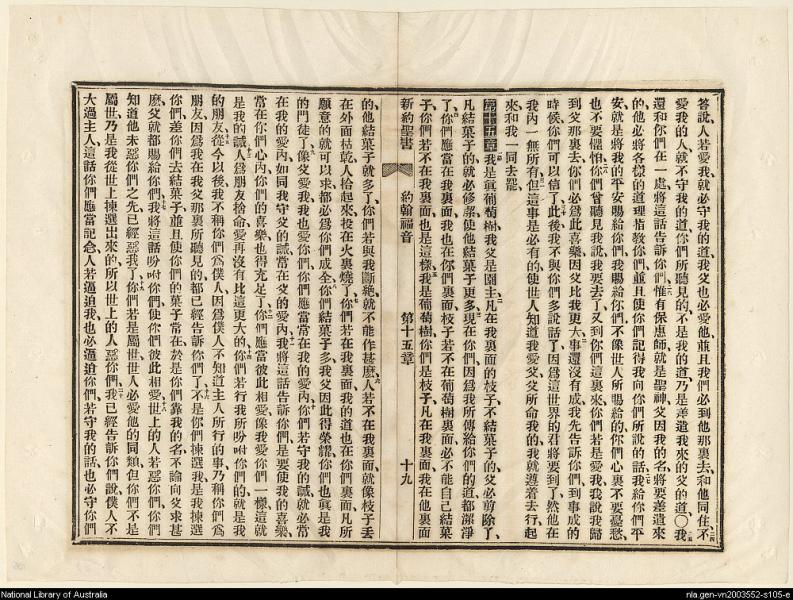 答說、人若愛我、就必守我的道、我父也必愛他、並且我們必到他那裏去、和他同住、不
愛我的人、就不守我的道、你們所聽見的、不是我的道、乃是差遣我來的父的道、〇我
還和你們在一處、將這話告訴你們、惟有保惠師、就是聖神、父因我的名、將要差遣來
的、他必將各樣的道理指教你們、並且使你們記得我向你們所說的話、我給你們平
安、就是將我的平安賜給你們、我賜給你們、不像世人所賜給的、你們心裏不要憂愁、
也不要懼怕、你們曾聽見我說、我要去了、又到你們這裏來、你們若是愛我、我說我歸
到父那裏去、你們必爲此喜樂、因父比我更大、事還沒有成、我先告訴你們、到事成的
時候、你們可以信了、此後我不與你們多說話了、因爲這世界的君將要到了、然他在
我內一無所有、但這事是必有的、使世人知道我愛父、父所命我的、我就遵着去行、起
來、和我一同去罷、
第十五章 我是眞葡萄樹、我父是園主、凡在我裏面的枝子、不結菓子的、父必剪除了、
凡結菓子的、就必修潔、使他結菓子更多、現在你們因我所傳給你們的道、都潔淨
了、你們應當在我裏面、我也在你們裏面、枝子若不在葡萄樹裏面、必不能自己結菓
子、你們若不在我裏面、也是這樣、我是葡萄樹、你們是枝子、凡在我裏面、我在他裏面
新約聖書 約翰福音 第十五章 十九
的、他結菓子就多了、你們若與我斷絶、就不能作甚麼、人若不在我裏面、就像枝子丟
在外面枯乾、人拾起來、投在火裏燒了、你們若在我裏面、我的道也在你們裏面、凡所
願意的、就可以求、都必爲你們成全、你們結菓子多、我父因此得榮耀、你們也眞是我
的門徒了、像父愛我、我也愛你們、你們應當常在我的愛內、你們若守我的誡、就必常
在我的愛內、如同我守父的誡、常在父的愛內、我將這話告訴你們、是要使我的喜樂、
常在你們心內、你們的喜樂、也得充足了、你們應當彼此相愛、像我愛你們一樣、這就
是我的誡、人爲朋友捨命、愛再沒有比這更大的、你們若行我所吩咐你們的、就是我
的朋友、從今以後、我不稱你們爲僕人、因爲僕人不知道主人所行的事、乃稱你們爲
朋友、因爲我在我父那裏所聽見的、都已經告訴你們了、不是你們揀選我、是我揀選
你們、差你們去結菓子、並且使你們的菓子常在、於是你們靠我的名、不論向父求甚
麼、父就都賜給你們、我將這話吩咐你們、使你們彼此相愛、世上的人若惡你們、你們
知道他未惡你們之先、已經惡我了、你們若是屬世、世人必愛他的同類、但你們不是
屬世、乃是我從世上揀選出來的、所以世上的人惡你們、我已經告訴你們說、僕人不
大過主人、這話你們應當記念、人若逼迫我、也必逼迫你們、若守我的話、也必守你們
National Library of Australia
nla.gen-vn2003552-s105-e